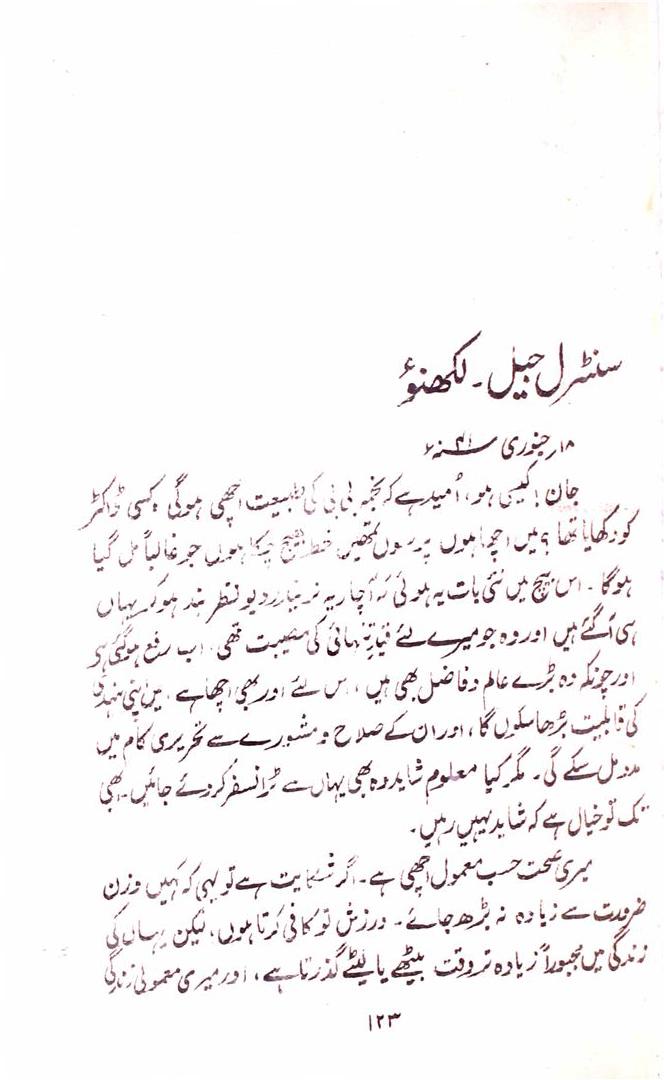 سنٹرل جیل۔ لکھنؤ
۱۸ر جنوری ۴۱ سنہء
جان! کیسی ہو، اُمید ہے کہ نجمہ بی بی کی طبیعت اچھی ہوگی، کسی ڈاکٹر
کو دکھایا تھا؟ میں اچھا ہوں پرسوں تمھیں خط بھیج چکا ہوں جو غالباً مل گیا
ہوگا۔ اس بیچ میں نئی بات یہ ہوئی کہ آچاریہ نریندر دیو نظر بند ہو کر یہاں
ہی آگئے ہیں اور وہ جو میرے لئے قیدِ تنہائی کی مصیبت تھی، اب رفع ہوگئی ہے
اور چونکہ وہ بڑے عالم و فاضل بھی ہیں، اس لئے اور بھی اچھا ہے، میں اپنی ہندی
کی قابلیت بڑھا سکوں گا، اور ان کے صلاح و مشورے سے تحریری کام میں
مدد مل سکے گی۔ مگر کیا معلوم شاید وہ بھی یہاں سے ٹرانسفر کردئے جائیں۔ ابھی
تک تو خیال ہے کہ شاید یہیں رہیں۔
میری صحت حسب معمول اچھی ہے۔ اگر شکایت ہے تو یہی کہ کہیں وزن
ضرورت سے زیادہ نہ بڑھ جائے۔ ورزش تو کافی کرتا ہوں، لیکن یہاں کی
زندگی میں مجبوراً زیادہ تر وقت بیٹھے یا لیٹے گذرتا ہے، اور میری معمولی زندگی
۱۲۳